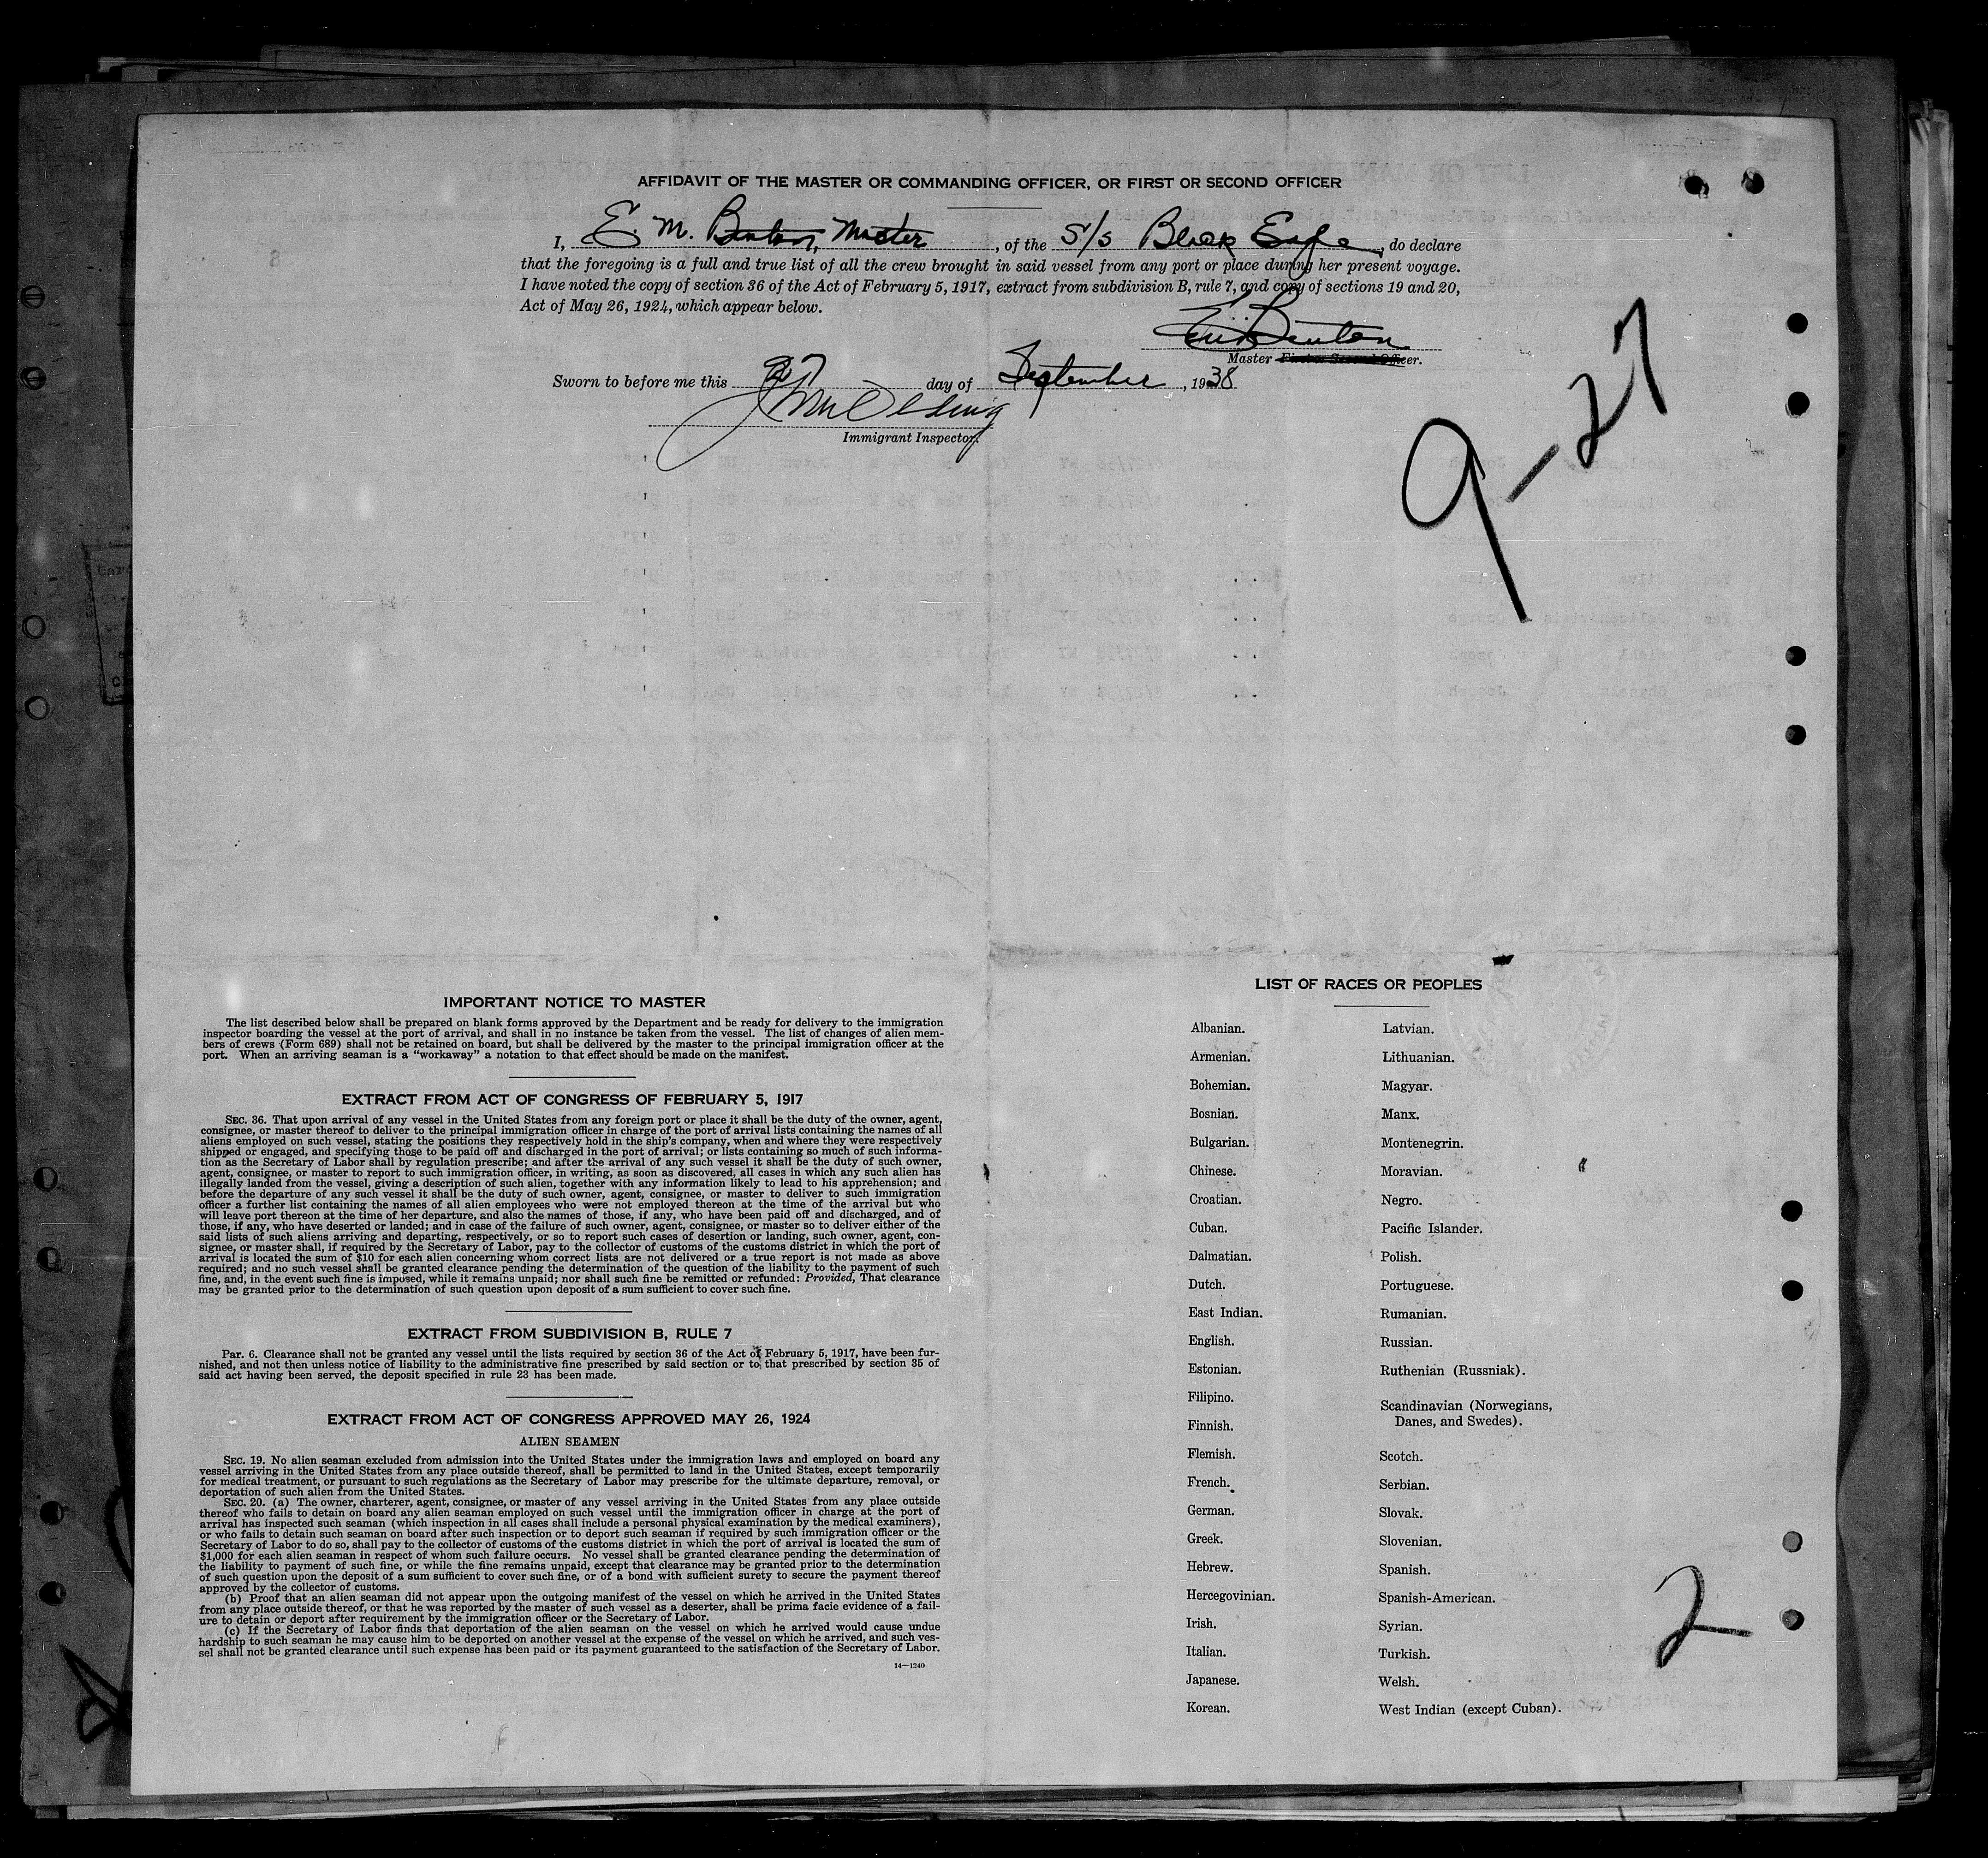 AFFIDAVIT OF THE MASTER OR COMMANDING OFFICER, OR FIRST OR SECOND OFFICER
I, E. M. Benton, Master, of the S/S Black Eagle, do declare
that the foregoing is a full and true list of all the crew brought in said vessel from any port or place during her present voyage.
I have noted the copy of section 36 of the Act of February 5, 1917, extract from subdivision B, rule 7, and copy of sections 19 and 20,
Act of May 26, 1924, which appear below.
E.M. Benton
Master First or Second Officer.
Sworn to before me this 27 day of September, 1938
Immigrant Inspector.
9-27
IMPORTANT NOTICE TO MASTER
The list described below shall be prepared on blank forms approved by the Department and be ready for delivery to the immigration
inspector boarding the vessel at the port of arrival, and shall in no instance be taken from the vessel. The list of changes of alien mem-
bers of crews (Form 689) shall not be retained on board, but shall be delivered by the master to the principal immigration officer at the
port. When an arriving seaman is a "workaway" a notation to that effect should be made on the manifest.
EXTRACT FROM ACT OF CONGRESS OF FEBRUARY 5, 1917
SEC. 36. That upon arrival of any vessel in the United States from any foreign port or place it shall be the duty of the owner, agent,
consignee, or master thereof to deliver to the principal immigration officer in charge of the port of arrival lists containing the names of all
aliens employed on such vessel, stating the positions they respectively hold in the ship's company, when and where they were respectively
shipped or engaged, and specifying those to be paid off and discharged in the port of arrival; or lists containing so much of such informa-
tion as the Secretary of Labor shall by regulation prescribe; and after the arrival of any such vessel it shall be the duty of such owner,
agent, consignee, or master to report to such immigration officer, in writing, as soon as discovered, all cases in which any such alien has
illegally landed from the vessel, giving a description of such alien, together with any information likely to lead to his apprehension; and
before the departure of any such vessel it shall be the duty of such owner, agent, consignee, or master to deliver to such immigration
officer a further list containing the names of all alien employees who were not employed thereon at the time of the arrival but who
will leave port thereon at the time of her departure, and also the names of those, if any, who have been paid off and discharged, and of
those, if any, who have deserted or landed; and in case of the failure of such owner, agent, consignee, or master so to deliver either of the
said lists of such aliens arriving and departing, respectively, or so to report such cases of desertion or landing, such owner, agent, con-
signee, or master shall, if required by the Secretary of Labor, pay to the collector of customs of the customs district in which the port of
arrival is located the sum of $10 for each alien concerning whom correct lists are not delivered or a true report is not made as above
required; and no such vessel shall be granted clearance pending the determination of the question of the liability to the payment of such
fine, and, in the event such fine is imposed, while it remains unpaid; nor shall such fine be remitted or refunded: Provided, That clearance
may be granted prior to the determination of such question upon deposit of a sum sufficient to cover such fine.
EXTRACT FROM SUBDIVISION B, RULE 7
Par. 6. Clearance shall not be granted any vessel until the lists required by section 36 of the Act of February 5, 1917, have been fur-
nished, and not then unless notice of liability to the administrative fine prescribed by said section or to that prescribed by section 35 of
said act having been served, the deposit specified in rule 23 has been made.
EXTRACT FROM ACT OF CONGRESS APPROVED MAY 26, 1924
ALIEN SEAMEN
SEC. 19. No alien seaman excluded from admission into the United States under the immigration laws and employed on board any
vessel arriving in the United States from any place outside thereof, shall be permitted to land in the United States, except temporarily
for medical treatment, or pursuant to such regulations as the Secretary of Labor may prescribe for the ultimate departure, removal, or
deportation of such alien from the United States.
SEC. 20. (a) The owner, charterer, agent, consignee, or master of any vessel arriving in the United States from any place outside
thereof who fails to detain on board any alien seaman employed on such vessel until the immigration officer in charge at the port of
arrival has inspected such seaman (which inspection in all cases shall include a personal physical examination by the medical examiners),
or who fails to detain such seaman on board after such inspection or to deport such seaman if required by such immigration officer or the
Secretary of Labor to do so, shall pay to the collector of customs of the customs district in which the port of arrival is located the sum of
$1,000 for each alien seaman in respect of whom such failure occurs. No vessel shall be granted clearance pending the determination of
the liability to payment of such fine, or while the fine remains unpaid, except that clearance may be granted prior to the determination
of such question upon the deposit of a sum sufficient to cover such fine, or of a bond with sufficient surety to secure the payment thereof
approved by the collector of customs.
(b) Proof that an alien seaman did not appear upon the outgoing manifest of the vessel on which he arrived in the United States
from any place outside thereof, or that he was reported by the master of such vessel as a deserter, shall be prima facie evidence of a fail-
ure to detain or deport after requirement by the immigration officer or the Secretary of Labor.
(c) If the Secretary of Labor finds that deportation of the alien seaman on the vessel on which he arrived would cause undue
hardship to such seaman he may cause him to be deported on another vessel at the expense of the vessel on which he arrived, and such ves-
sel shall not be granted clearance until such expense has been paid or its payment guaranteed to the satisfaction of the Secretary of Labor.
14—1240
LIST OF RACES OR PEOPLES
Albanian.
Armenian.
Bohemian.
Bosnian.
Bulgarian.
Chinese.
Croatian.
Cuban.
Dalmatian.
Dutch.
East Indian.
English.
Estonian.
Filipino.
Finnish.
Flemish.
French.
German.
Greek.
Hebrew.
Hercegovinian.
Irish.
Italian.
Japanese.
Korean.
Latvian.
Lithuanian.
Magyar.
Manx.
Montenegrin.
Moravian.
Negro.
Pacific Islander.
Polish.
Portuguese.
Rumanian.
Russian.
Ruthenian (Russniak).
Scandinavian (Norwegians,
Danes, and Swedes).
Scotch.
Serbian.
Slovak.
Slovenian.
Spanish.
Spanish-American.
Syrian.
Turkish.
Welsh.
West Indian (except Cuban).
2